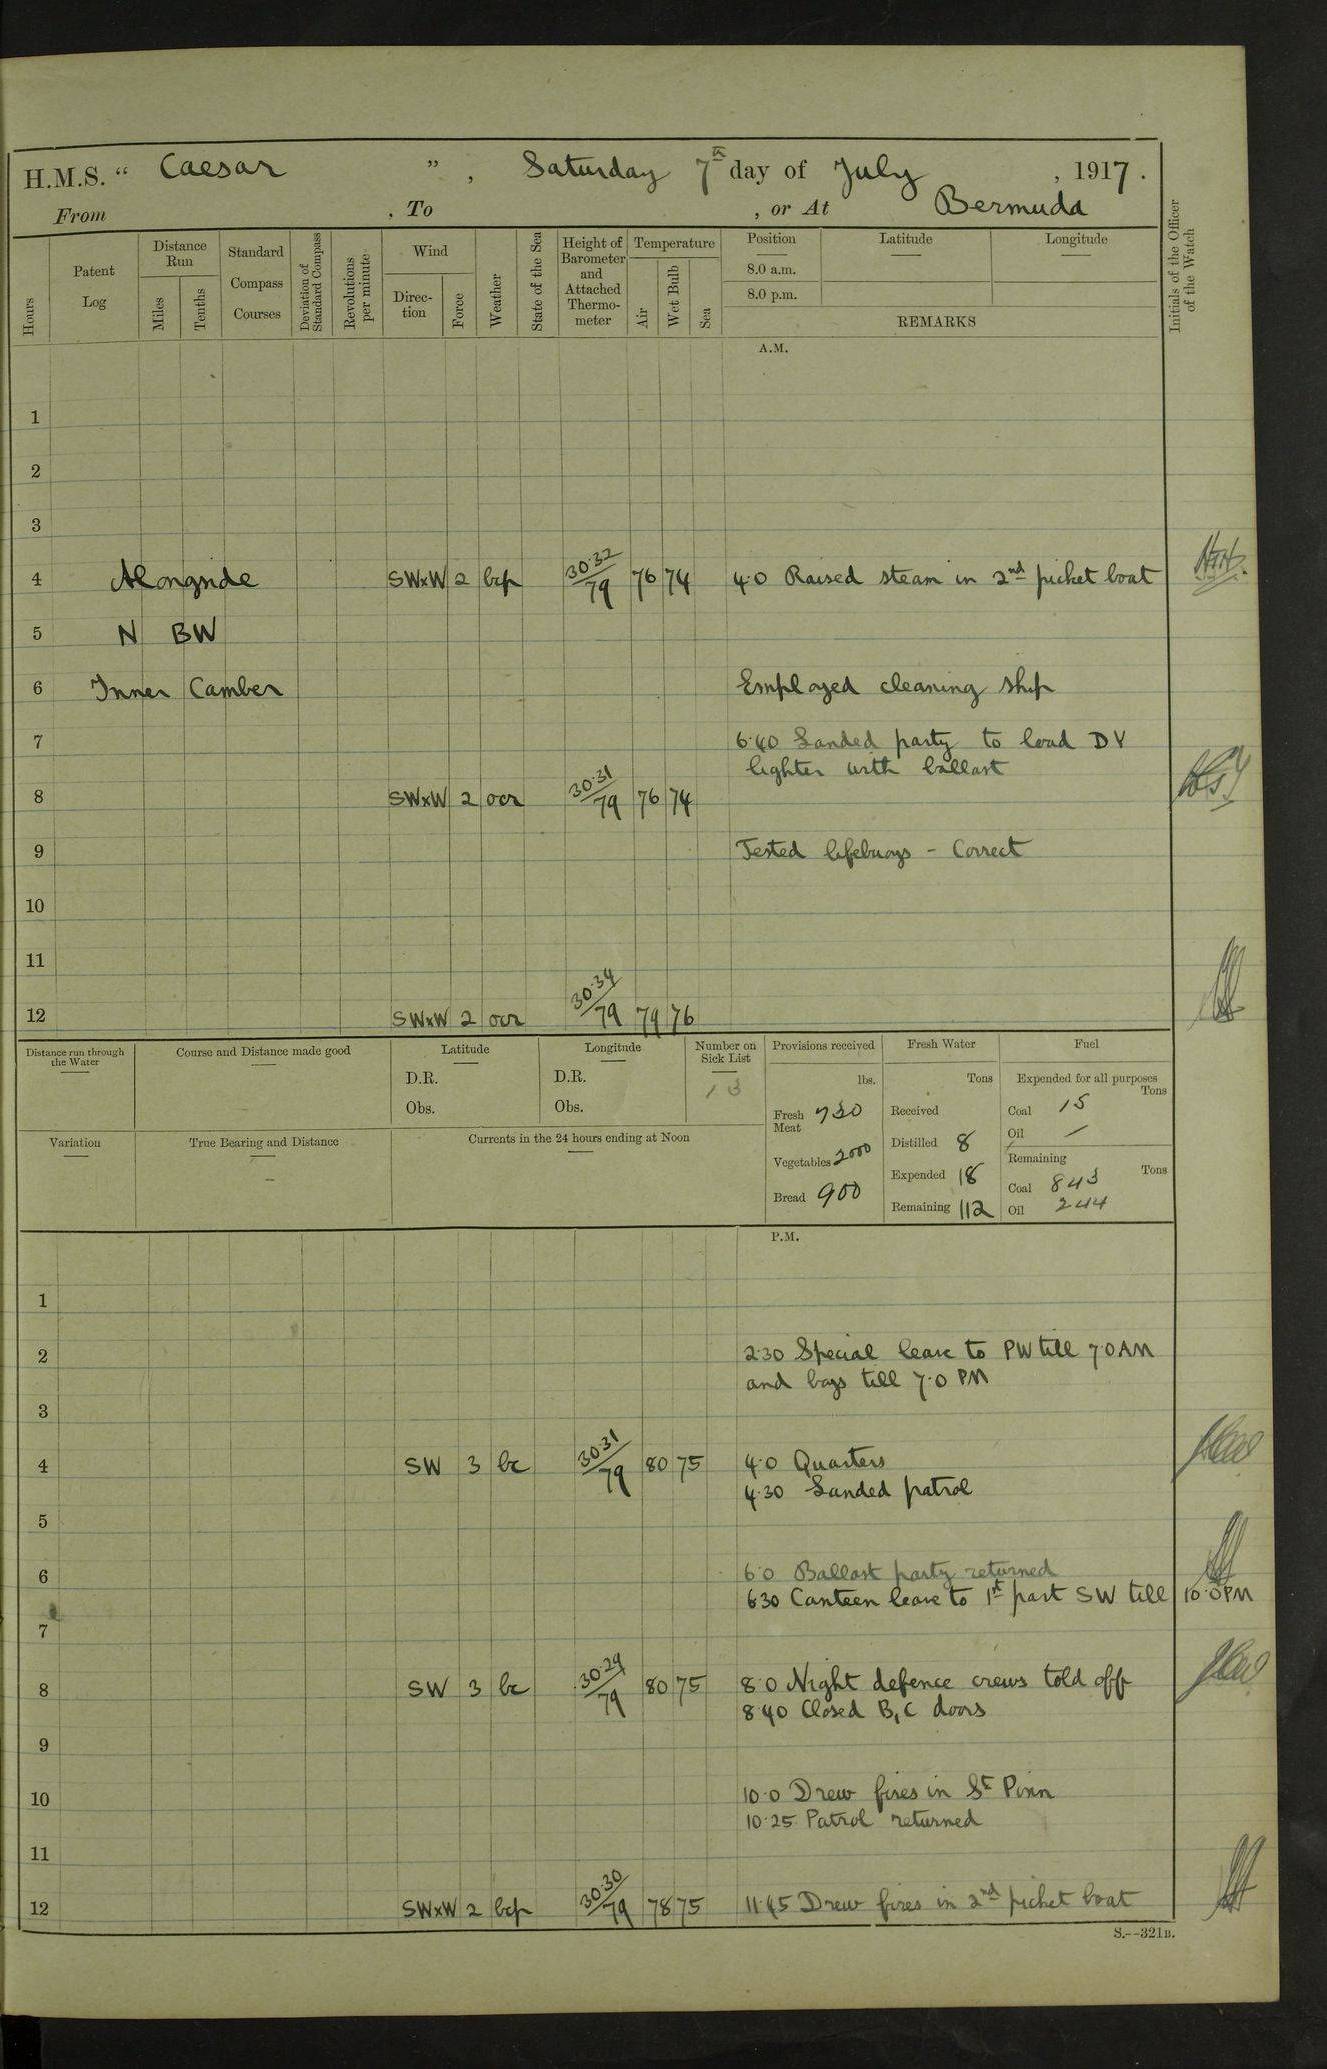 H.M.S. “ Caesar ” , Saturday 7th day of July , 1917.
From , To , or At Bermuda
Hours
Patent Log
Distance Run
Miles
Tenths
Standard Compass Courses
Deviation of Standard Compass
Revolutions per minute
Wind
Direc-tion
Force
Weather
State of the Sea
Height of Barometer and Attached Thermo-meter
Temperature
Air
Wet Bulb
Sea
Position
8.0 a.m.
8.0 p.m.
Latitude
Longitude
REMARKS
Initials of the Officer of the Watch
A.M.
1
2
3
4 Alongside SWxW 2 bcp 30.32/79 76 74 4.0 Raised steam in 2nd picket boat
5 N BW
6 Inner Camber Employed cleaning ship
7 6.40 Landed party to load DY
lighter with ballast
8 SWxW 2 ocr 30.31/79 76 74
9 Tested lifebuoys - Correct
10
11
12 SWxW 2 ocr 30.34/79 79 76
Distance run through the Water
Course and Distance made good
Latitude
D.R.
Obs.
Longitude
D.R.
Obs.
Number on Sick List
13
Provisions received
lbs.
Fresh Meat 730
Vegetables 2000
Bread 900
Fresh Water
Tons
Received
Distilled 8
Expended 18
Remaining 112
Fuel
Expended for all purposes
Tons
Coal 15
Oil /
Remaining
Tons
Coal 843
Oil 244
Variation
True Bearing and Distance
Currents in the 24 hours ending at Noon
P.M.
1
2 2.30 Special leave to PW till 7.0 AM
and boys till 7.0 PM
3
4 SW 3 bc 30.31/79 80 75 4.0 Quarters
4.30 Landed patrol
5
6 6.0 Ballast party returned
6.30 Canteen leave to 1st part SW till 10.0 PM
7
8 SW 3 bc 30.29/79 80 75 8.0 Night defence crews told off
8.40 Closed B, C doors
9
10 10.0 Drew fires in St Pinn
10.25 Patrol returned
11
12 SWxW 2 bcp 30.30/79 78 75 11.45 Drew fires in 2nd picket boat
S.--321B.